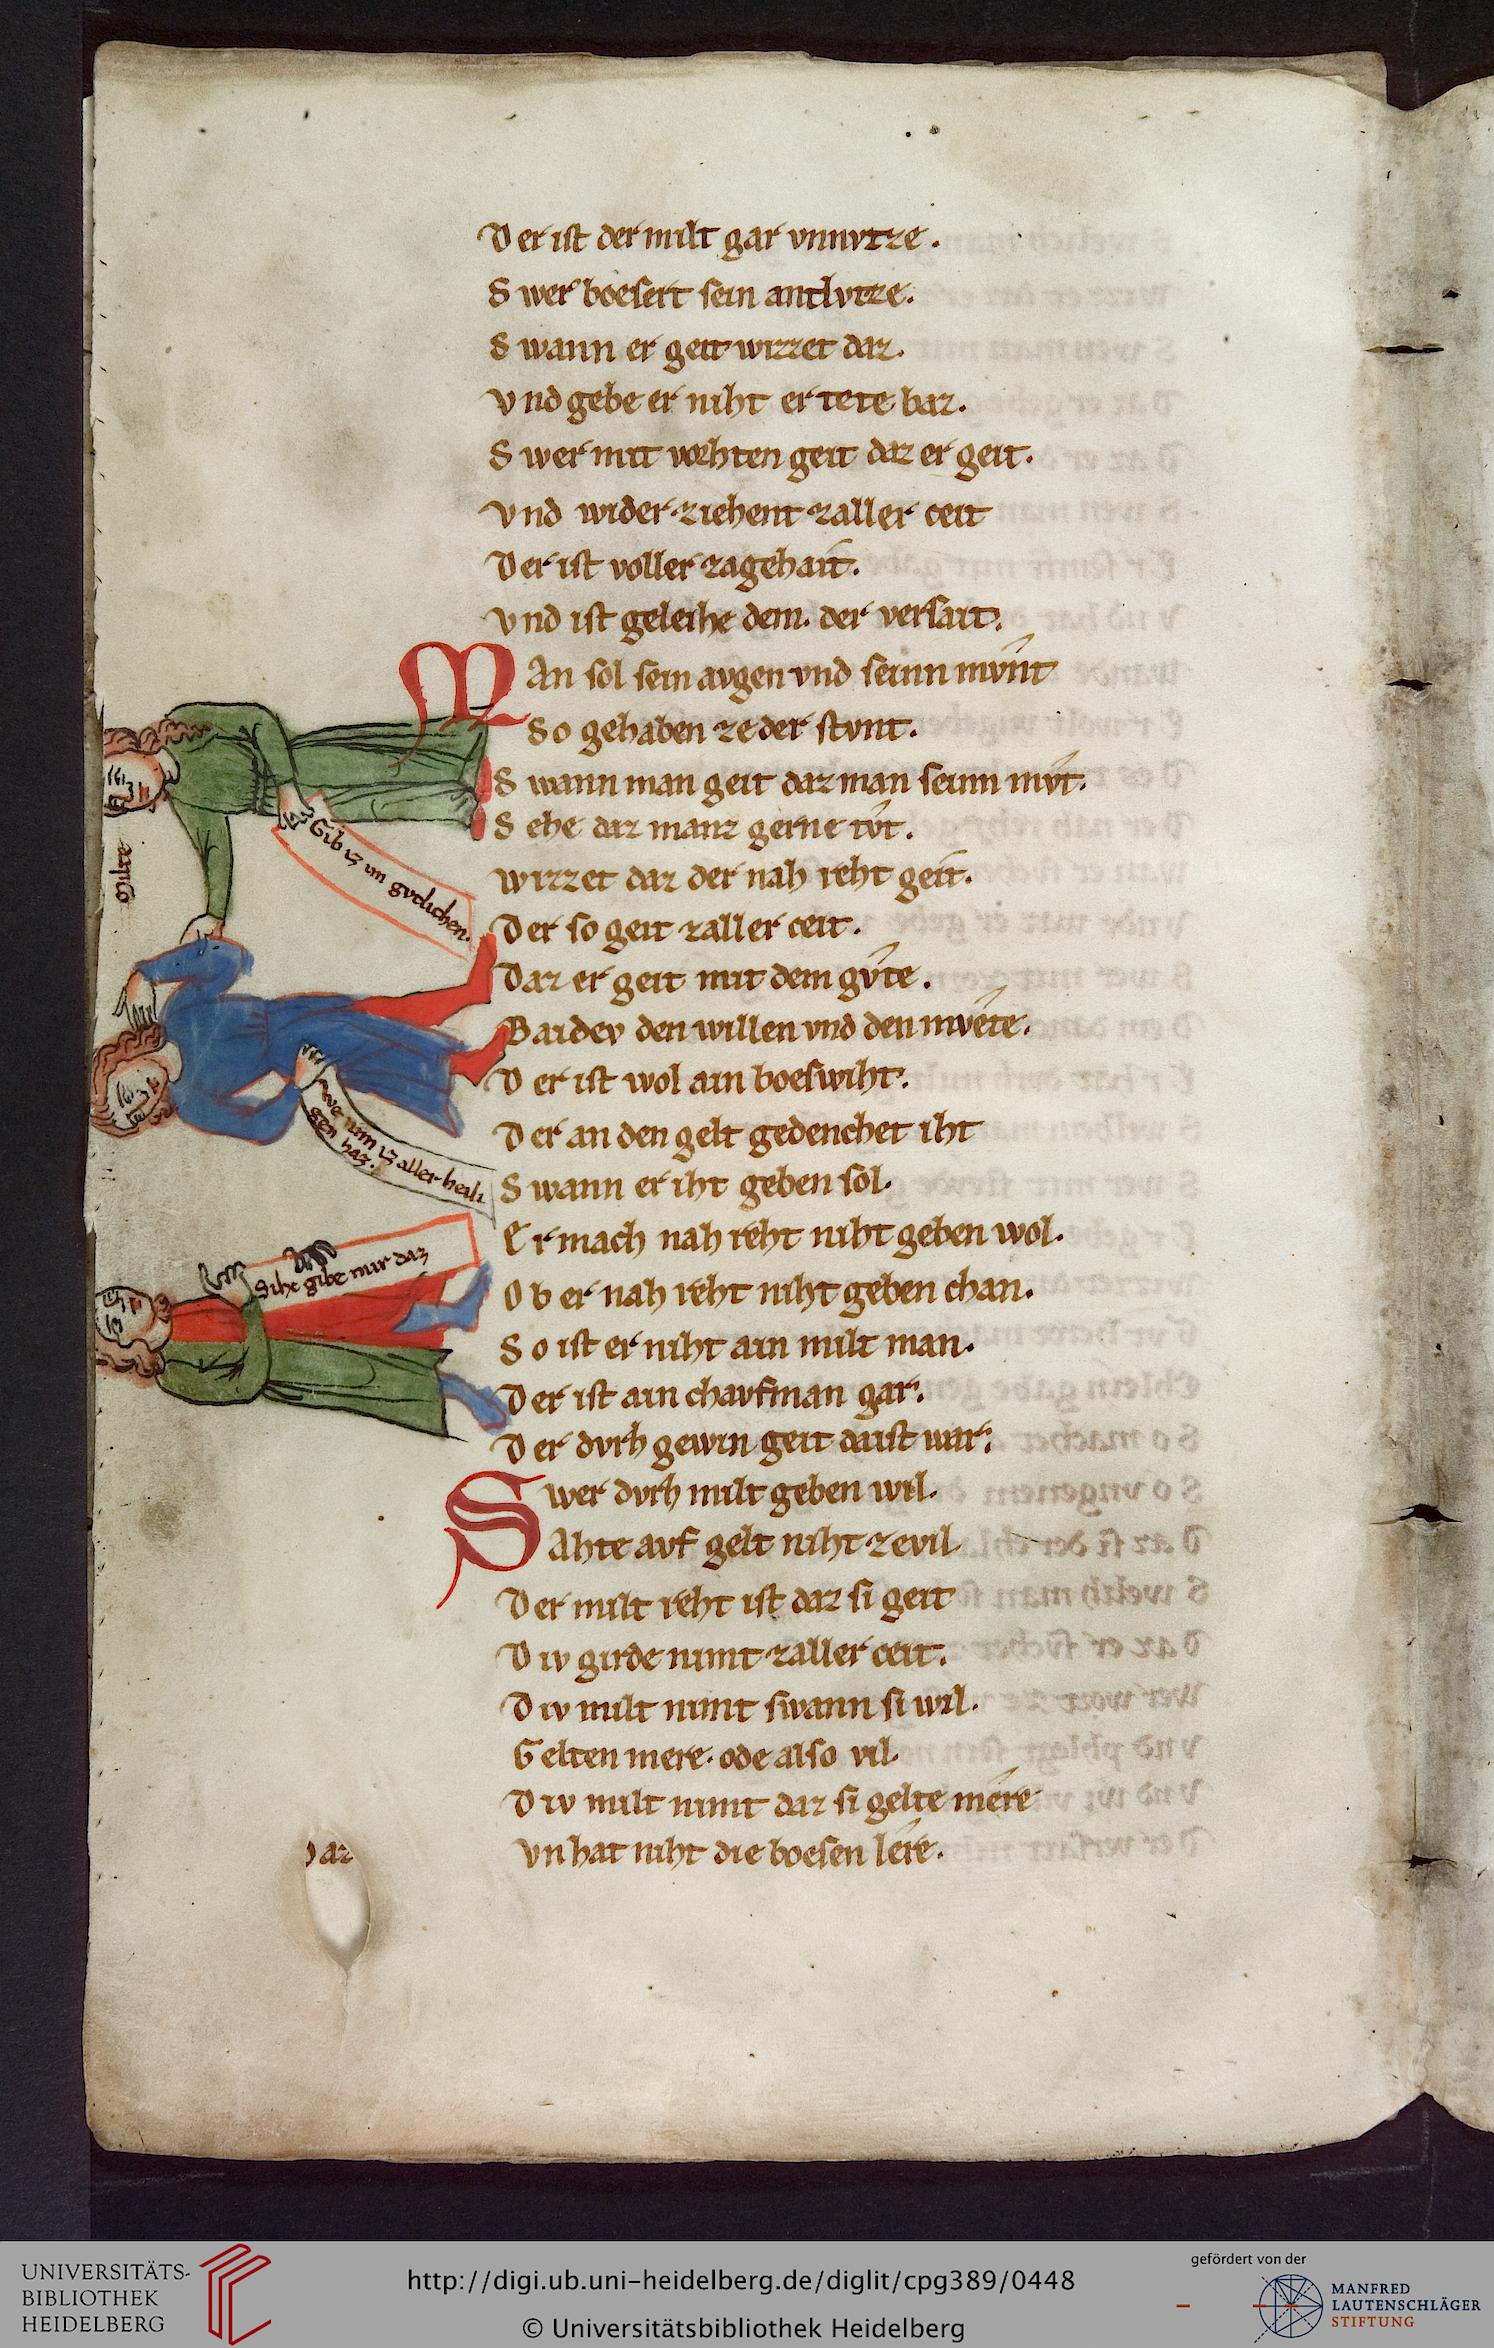 Der ist der milt gar vnnvtze.
Swer boesert sein antlvtze.
Swann er geit wizzet daz.
Vnd gebe er niht er tete baz.
Swer mit vorhten geit daz er geit.
Vnd wider ziehent zaller ceit
Der ist voller zagehait.
Vnd ist geleihe dem. der versait.
Man sol sein avgen vnd seinn mvnt
So gehaben ze der stvnt.
Swann man geit daz man seinn mvt.
Sehe daz manz gerne tvt.
Wizzet daz der nah reht geit.
Der so geit zaller ceit.
Daz er geit mit dem gvte.
Baidev den willen vnd den mvete.
Der ist wol ain boeswiht.
Der an den gelt gedenchet iht
Swann er iht geben sol.
Er mach nah reht niht geben wol.
Ob er nah reht niht geben chan.
So ist er niht ain milt man.
Der ist ain chavfman gar.
Der dvrh gewin geit daist war.
Swer dvrh milt geben wil.
Sahte avf gelt niht ze vil
Der milt reht ist daz si geit
Div girde nimt zaller ceit.
Div milt nimt swann si wil.
Gelten mere. ode also vil.
Div milt nimt daz si gelte mere
Vn hat niht die boesen lere.
Daz
milte
Gib iz im gvtlichen.
nim iz aller heili
gen haz.
Sihe gibe mir daz
UNIVERSITÄTS-
BIBLIOTHEK
HEIDELBERG
http://digi.ub.uni-heidelberg.de/diglit/cpg389/0448
© Universitätsbibliothek Heidelberg
gefördert von der
MANFRED
LAUTENSCHLÄGER
STIFTUNG